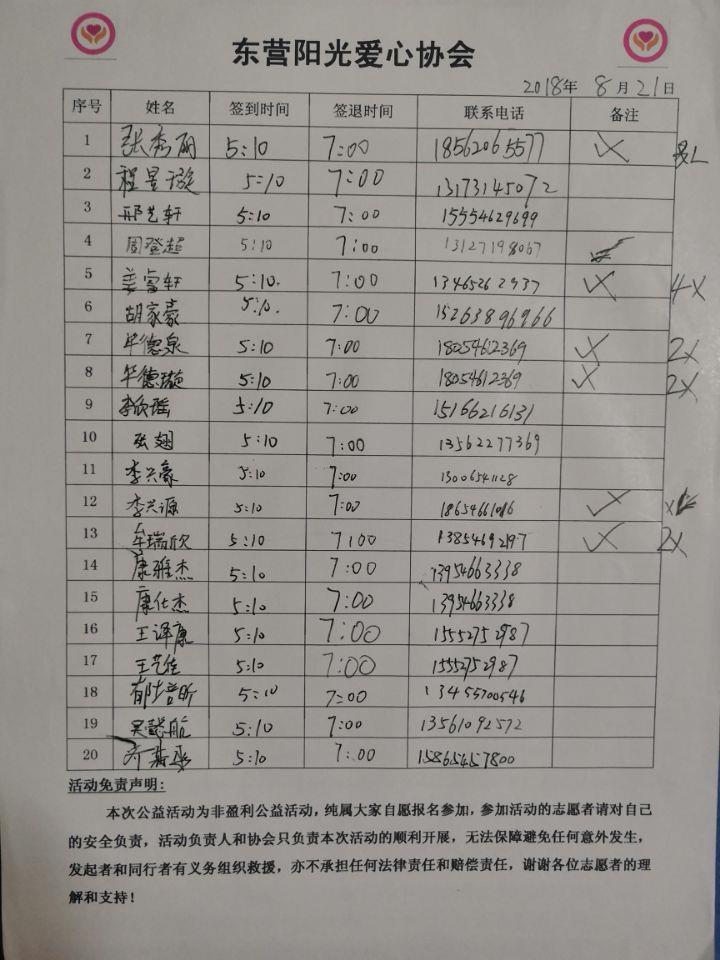 东营阳光爱心协会
2018年 8月21日
序号 姓名 签到时间 签退时间 联系电话 备注
1 张秀丽 5:10 7:00 18562065577 ✓×
2 程星璇 5:10 7:00 13173145072
3 邢艺轩 5:10 7:00 15554629699
4 周登超 5:10 7:00 13127198067 ✓
5 姜富轩 5:10. 7:00 13465262937 ✓× 4X
6 胡家豪 5:10. 7:00 15263896966
7 毕德泉 5:10 7:00 18054612369 ✓× 2X
8 毕德璇 5:10 7:00 18054612369 ✓× 2X
9 李欣瑶 5:10 7:00 15166216131
10 张翅 5:10 7:00 13562277369
11 李兴豪 5:10 7:00 13006541128
12 李兴源 5:10 7:00 18654661086 ✓×
13 牟瑞欣 5:10 7:00 13854692197 ✓× 2X
14 康雅杰 5:10 7:00 13954663338
15 康仕杰 5:10 7:00 13954663338
16 王译康 5:10 7:00 15552752987
17 王艺佳 5:10 7:00 15552752987
18 郁培昕 5:10 7:00 13455700546
19 吴懿航 5:10 7:00 13561092572
20 5:10 7:00 15865457800
活动免责声明:
本次公益活动为非盈利公益活动，纯属大家自愿报名参加，参加活动的志愿者请对自己
的安全负责，活动负责人和协会只负责本次活动的顺利开展，无法保障避免任何意外发生，
发起者和同行者有义务组织救援，亦不承担任何法律责任和赔偿责任，谢谢各位志愿者的理
解和支持！